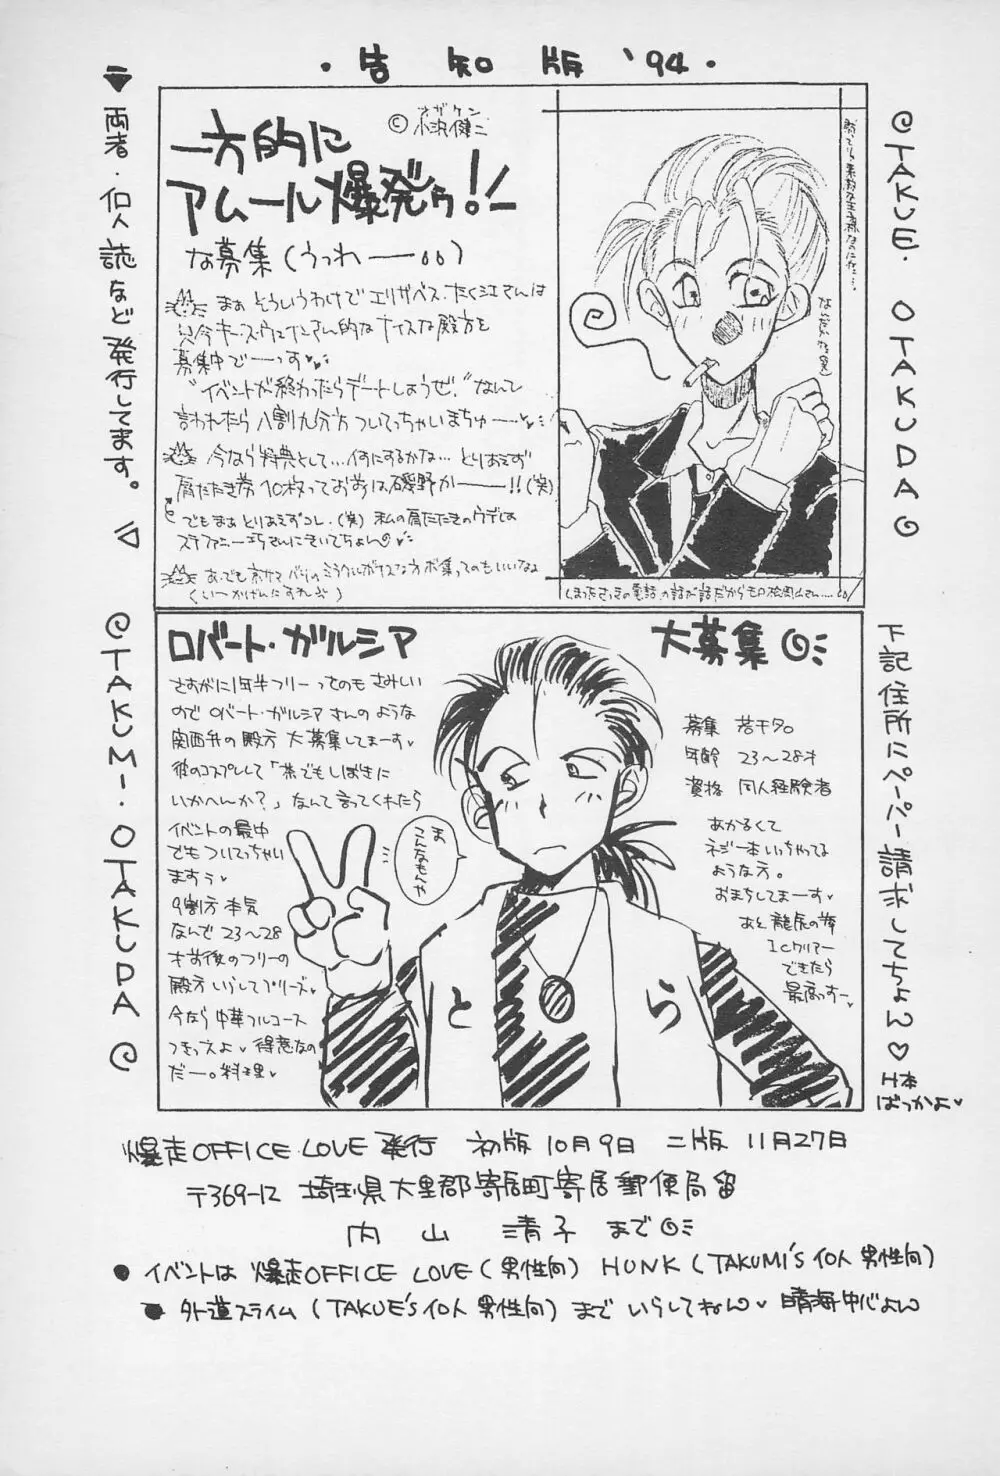 ・告知版'94・
▼両者・個人誌など発行してます。
◎TAKUE・OTAKUDA◎
オザケン
©小沢健二
一方的に
アムール爆発ゥ!!
な募集(うっわー。。)
まぁそういうわけでエリザベス・たく江さんは
只今キース・ウェナーさん的なナイスな殿方を
募集中でーっす♥♥
"イベントが終わったらデートしようぜ!"なんて
言われたら八割九分方ついてっちゃいまちゅー…♥♥
今なら特典として…何にするかな…とりあえず
肩たたき券10枚っておお前は磯野かーー!!(笑)
でもまぁとりあえずコレ・(笑) 私の肩たたきのウデは
ステファニー巧さんにきいてちょん◎♥
あ、でも京サマバリのミラクルボナスな方ボ集ってのもいいなぁ
(いーかげんにすれぶ)
なっなんだ(笑)
ロバート・ガルシア
大募集◎
さすがに1年半フリーってのもさみしい
のでロバート・ガルシアさんのような
関西弁の殿方大募集してまーす♥
彼のコスプレして「茶でもしばきに
いかへんか?」なんて言ってくれたら
イベントの最中
でもついてっちゃい
ますぅ♥
9割方本気
なんで23〜28
才前後のフリーの
殿方いらしてプリーズ♥
今なら中華フルコース
つきってよ♥得意なの
だー。料理♥
ま
こんなもんや
と ら
募集 若干名
年齢 23〜28才
資格 同人経験者
あかるくて
ネジ一本いっちゃってる
ような方。
おまちしてまーす♥
あと龍虎の拳
1Cクリアー
できたら
最高っすー♥
◎TAKUMI・OTAKUDA◎
下記住所にペーパー請求してちょん♡
H本
ばっかよ♥
爆走OFFICE LOVE発行 初版10月9日 二版11月27日
〒369-12 埼玉県大里郡寄居町寄居郵便局留
内山 清子 まで◎
●イベントは 爆走OFFICE LOVE(男性向) HUNK(TAKUMI'S個人男性向)
●外道スライム(TAKUE'S個人男性向)までいらしてねん♥晴海中心よん